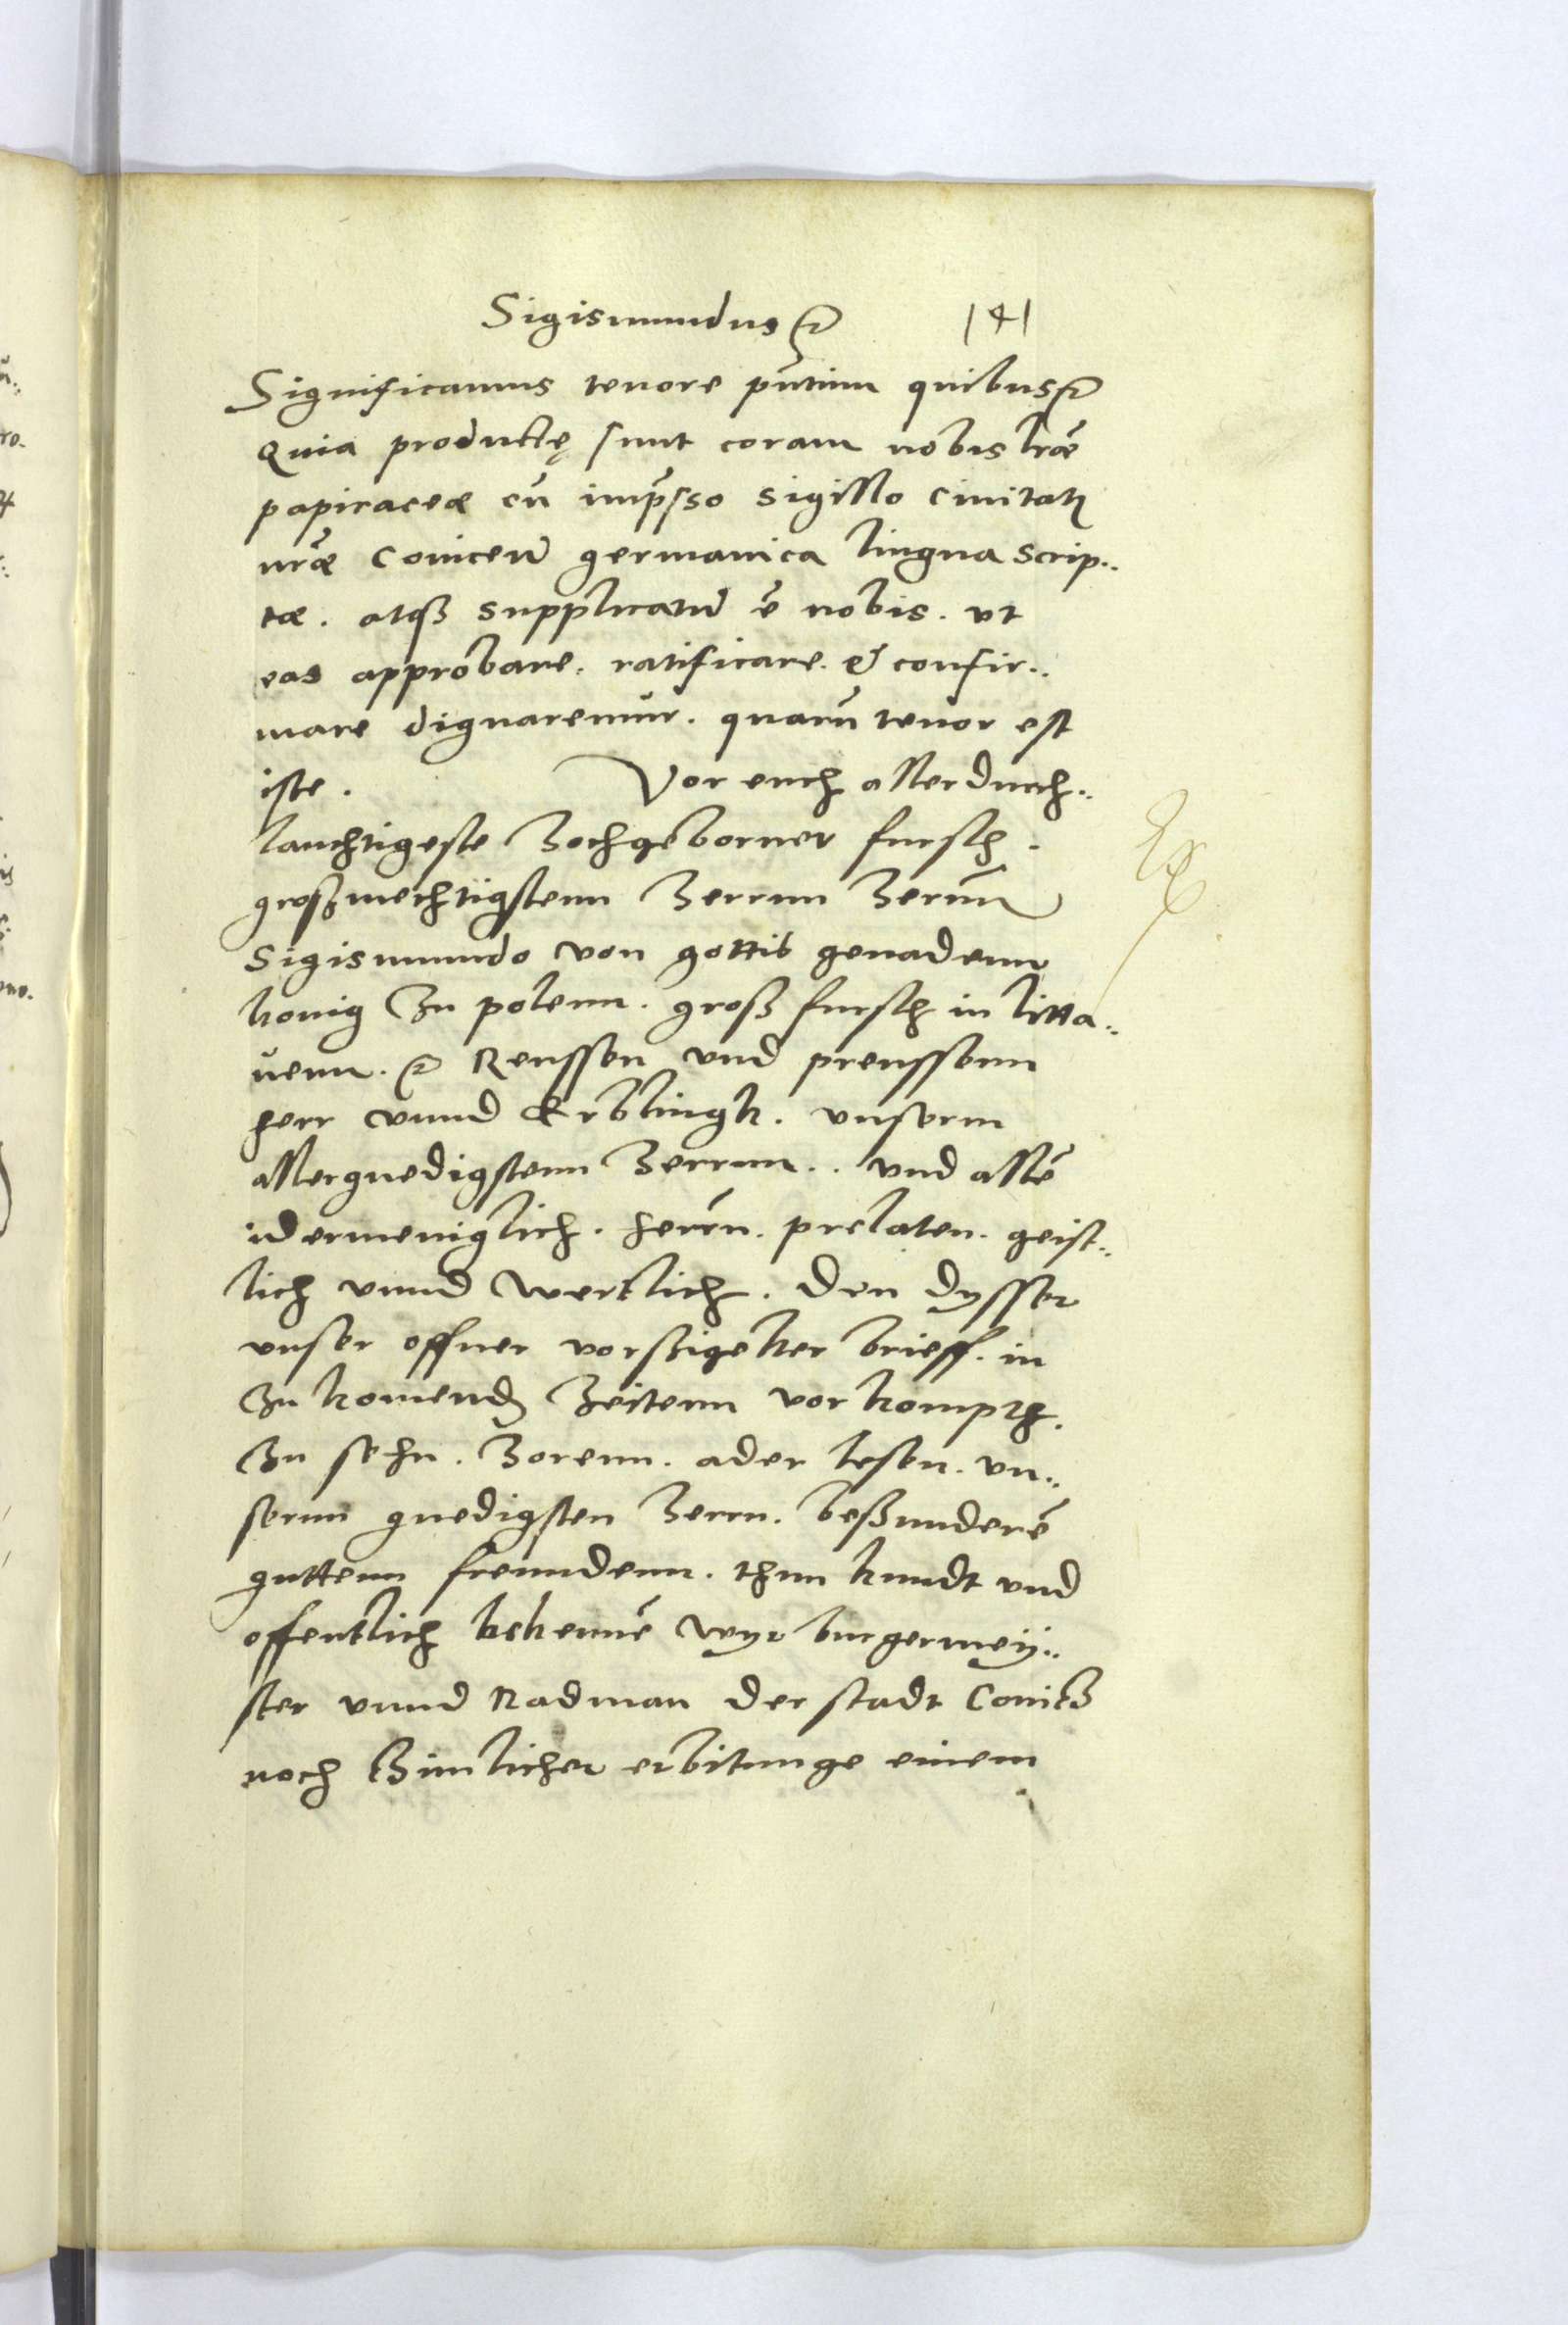 Sigismundus etc 141
Significamus tenore pñtium quibus etc
Quia productę sunt coram nobis lr̃æ
papiraceæ cũ imp̃sso sigillo Ciuitatis
nr̃æ Conicen̄ germanica lingua scrip..
tæ. atq3 supplicatũ ẽ nobis. vt
eas approbare. ratificare. et confir..
mare dignaremur. quarũ tenor est
iste. Vor euch allerdurch..
lauchtigeste Hochgeborner fursth.
großmechtigstenn Herrnn Hernn
Sigismundo von gottis genadenn
konig Zu polenn. groß fursth in litta..
uenn. etc Reussen vnd preussenn
herr vnnd Erblingk. vnserm
allergnedigstenn Herrnn.. vnd allẽ
idermeniglich. herrn. prelaten. geist..
lich vnnd wertlich. den dysser
vnser offner vorszigelter brieff. in
Zu komend Zeitenn vor kompt.
Zu sehn. Horenn. ader lesen. vn..
sernn gnedigsten Herrn. beßunderẽ
guttenn freundenn. thun kundt vnd
offentlich bekennẽ wyr burgermeÿ..
ster vnnd Radman der stadt Conitz
noch tzimlicher erbitunge einem